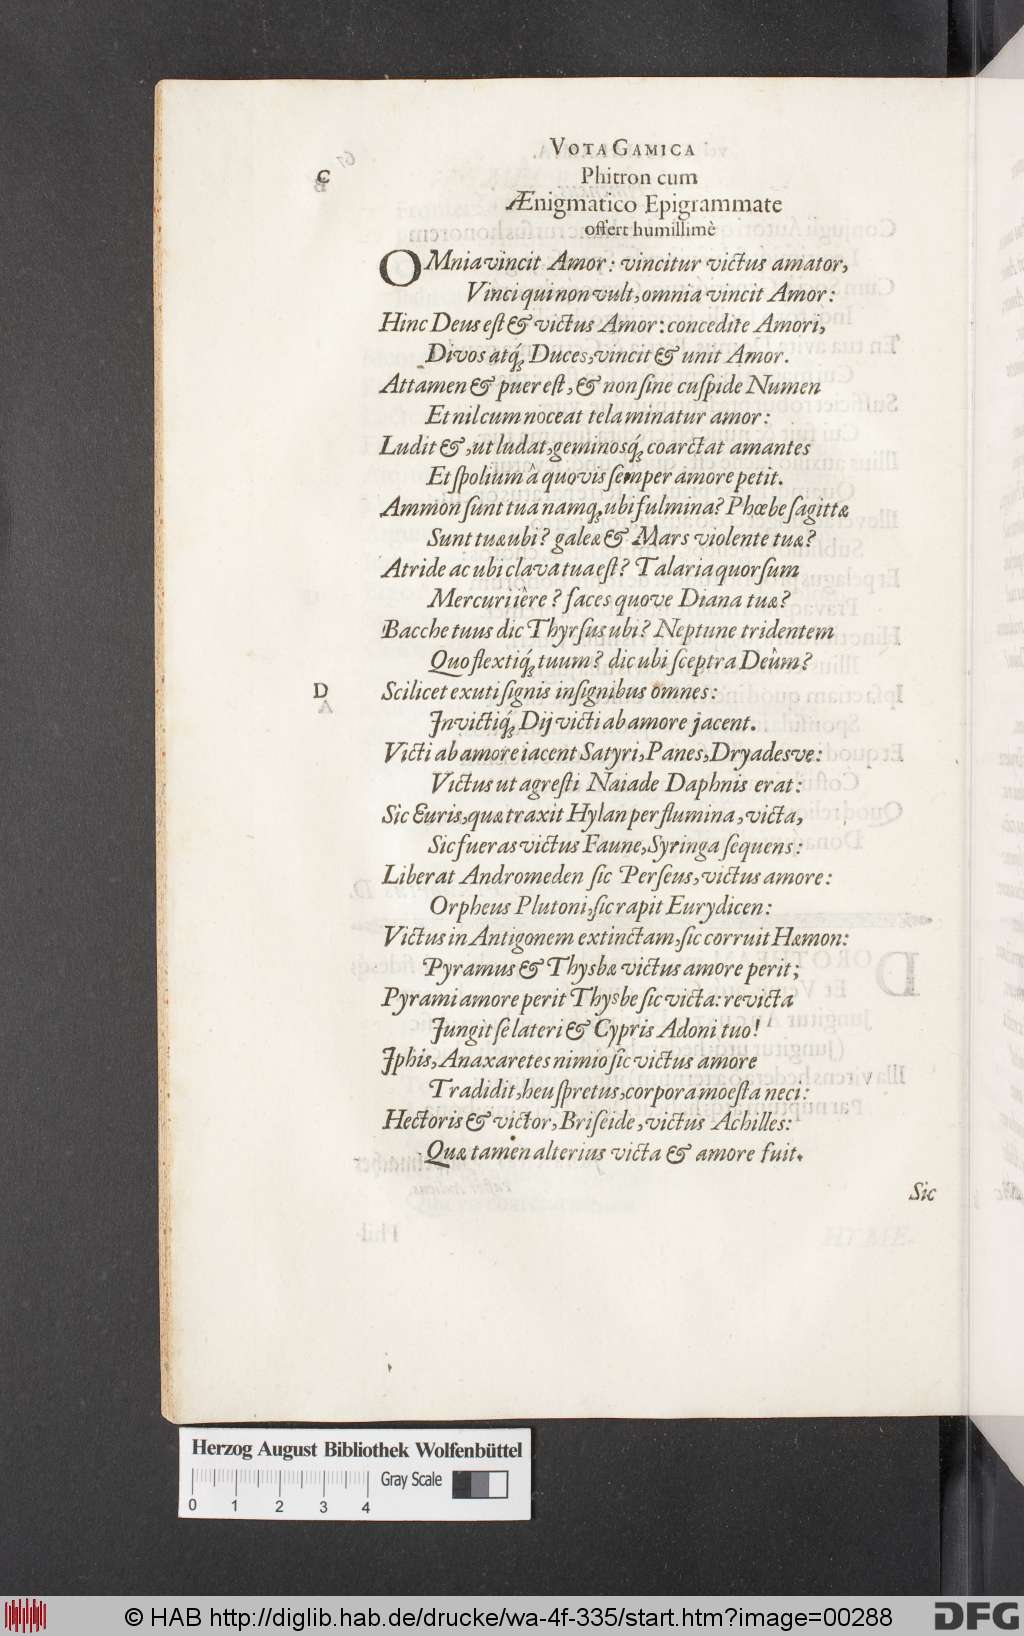 VOTA GAMICA
C
Phitron cum
Ænigmatico Epigrammate
offert humillimè
OMnia vincit Amor: vincitur victus amator,
Vinci qui non vult, omnia vincit Amor:
Hinc Deus eſt & victus Amor: concedite Amori,
Divos atq́; Duces, vincit & unit Amor.
Attamen & puer eſt, & non ſine cuſpide Numen
Et nil cum noceat tela minatur amor:
Ludit &, ut ludat, geminosq́; coarctat amantes
Et ſpolium â quovis ſemper amore petit.
Ammon ſunt tua namq; ubi fulmina? Phœbe ſagittæ
Sunt tuæ ubi? galeæ & Mars violente tuæ?
Atride ac ubi clava tua eſt? Talaria quorſum
Mercuri iêre? faces quove Diana tuæ?
Bacche tuus dic Thyrſus ubi? Neptune tridentem
Quo flextiq́; tuum? dic ubi ſceptra Deûm?
D
Scilicet exuti ſignis inſignibus omnes:
Invictiq́; Dij victi ab amore jacent.
Victi ab amore iacent Satyri, Panes, Dryadesve:
Victus ut agreſti Naiade Daphnis erat:
Sic Euris, quæ traxit Hylan per flumina, victa,
Sic fueras victus Faune, Syringa ſequens:
Liberat Andromeden ſic Perſeus, victus amore:
Orpheus Plutoni, ſic rapit Eurydicen:
Victus in Antigonem extinctam, ſic corruit Hæmon:
Pyramus & Thysbæ victus amore perit;
Pyrami amore perit Thysbe ſic victa: revicta
Jungit ſe lateri & Cypris Adoni tuo!
Iphis, Anaxaretes nimio ſic victus amore
Tradidit, heu ſpretus, corpora moeſta neci:
Hectoris & victor, Briſeide, victus Achilles:
Quæ tamen alterius victa & amore fuit.
Sic
Herzog August Bibliothek Wolfenbüttel
Gray Scale
0 1 2 3 4
© HAB http://diglib.hab.de/drucke/wa-4f-335/start.htm?image=00288
DFG